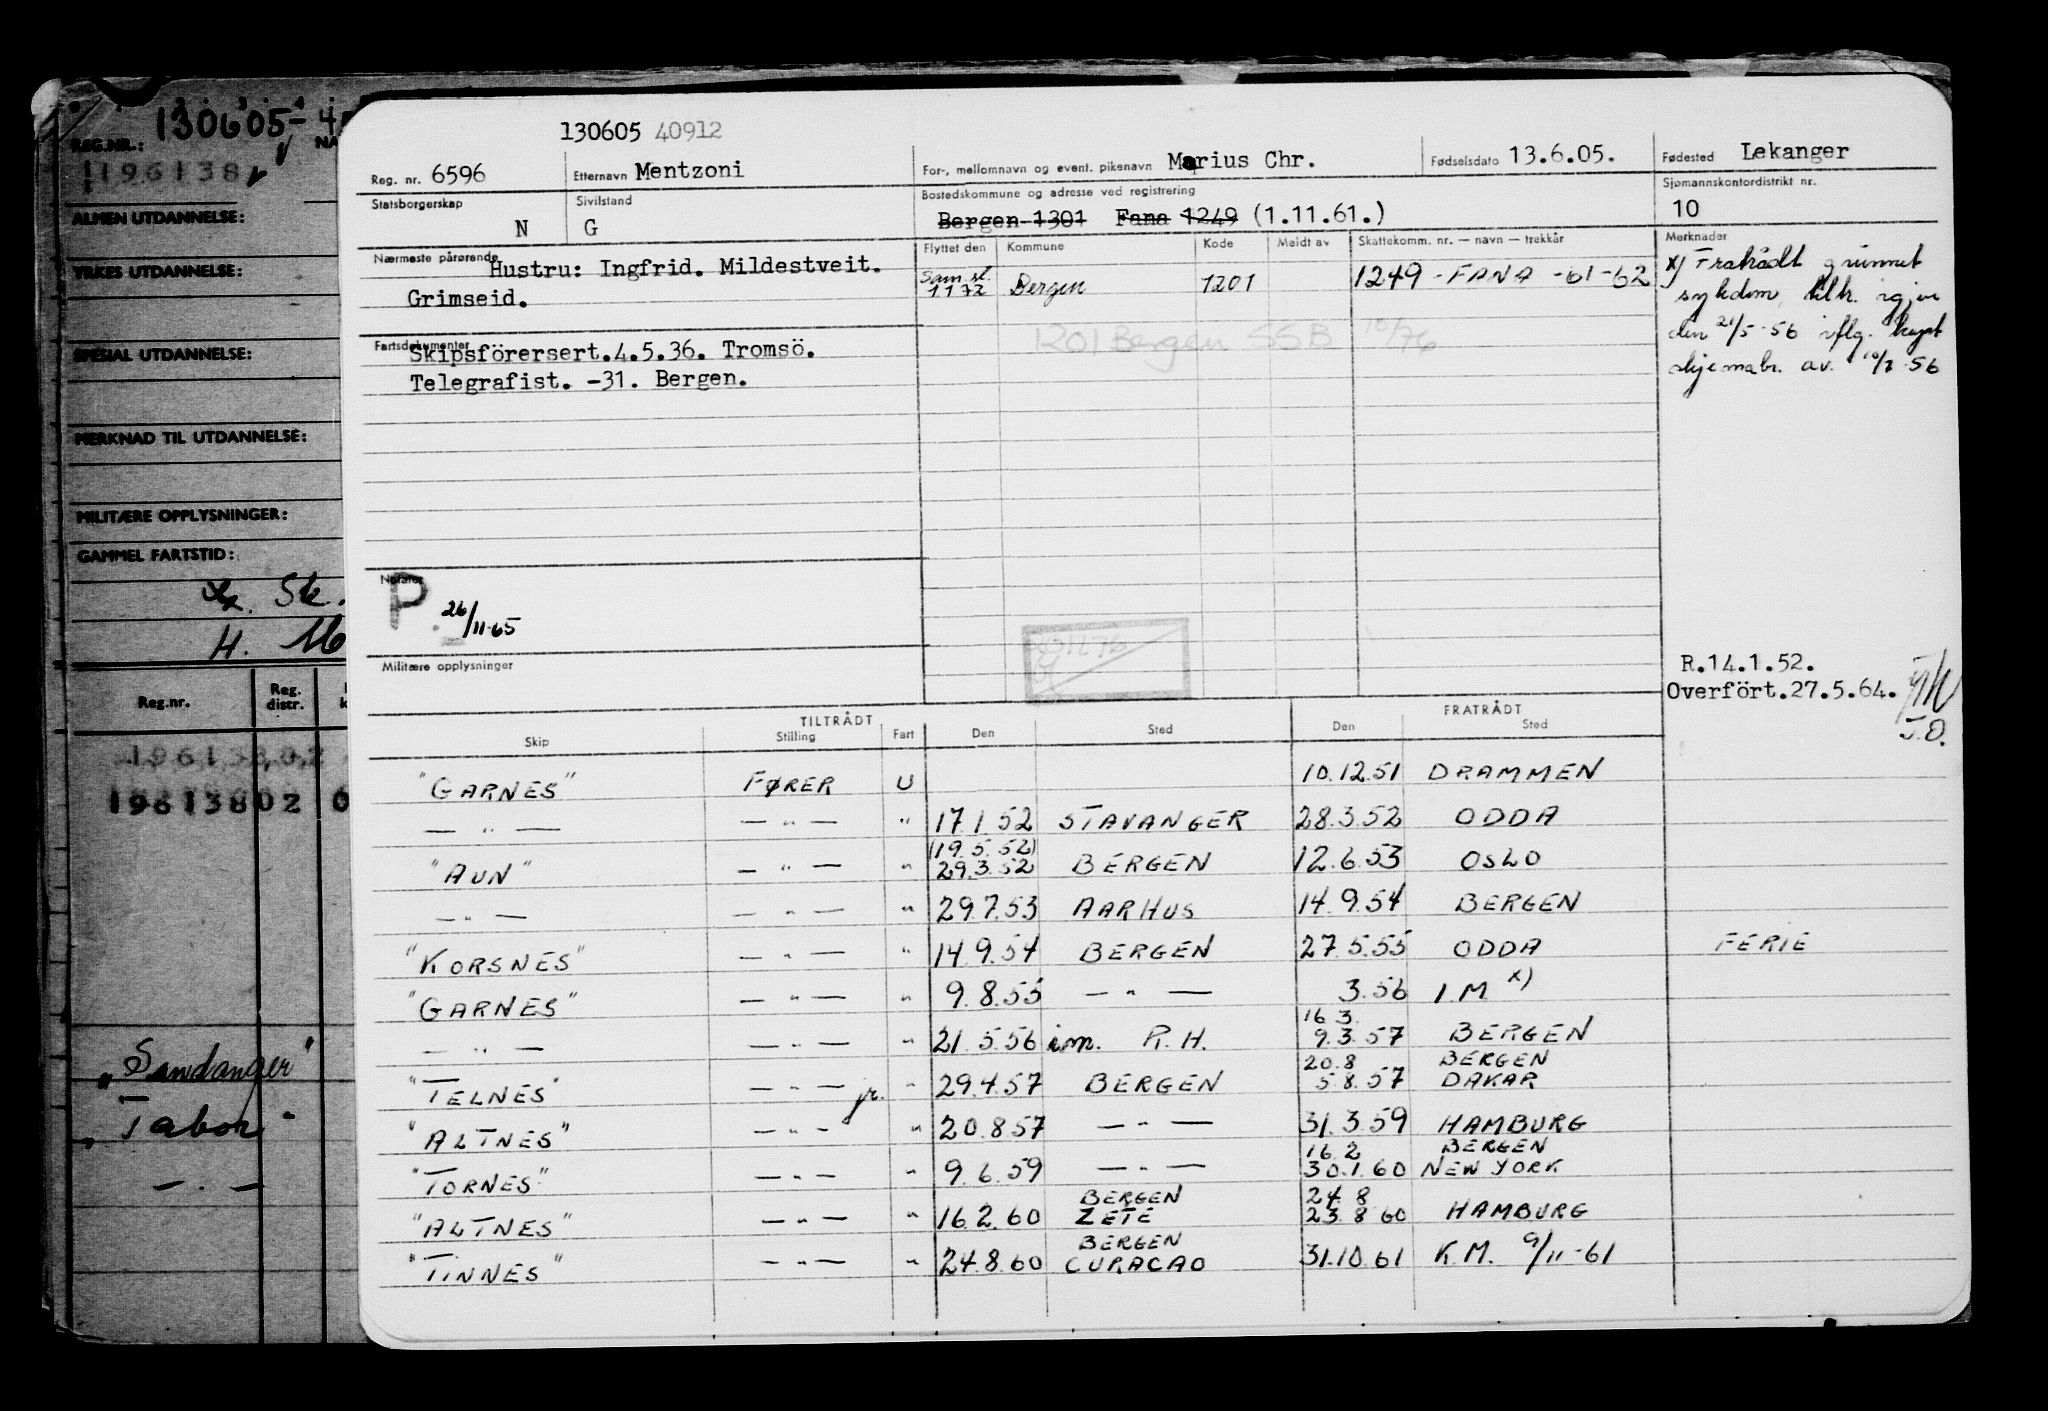 REG.NR.: 130605-4
1196138
ALMEN UTDANNELSE:
YRKES UTDANNELSE:
SPESIAL UTDANNELSE:
MERKNAD TIL UTDANNELSE:
MILITÆRE OPPLYSNINGER:
GAMMEL FARTSTID:
Sk.
H. Mo
Reg.nr. Reg. distr.
19613802
19613802 0
"Sandanger"
"Tabor"
— " —
130605 40912
Reg. nr. 6596 Etternavn Mentzoni For-, mellomnavn og event. pikenavn Marius Chr. Fødselsdato 13.6.05. Fødested Lekanger
Statsborgerskap N Sivilstand G Bostedskommune og adresse ved registrering Bergen 1301 Fana 1249 (1.11.61.) Sjømannskontordistrikt nr. 10
Nærmeste pårørende Hustru: Ingfrid. Mildestveit.
Grimseid.
Flyttet den Kommune Kode Meldt av Skattekomm. nr. — navn — trekkår
Sam.sl. 1172 Bergen 1201 1249 - FANA - 61-62
1201 Bergen SSB 10/76
Merknader
x) Fratrådt grunnet
sykdom, tiltr. igjen
den 21/5-56 iflg. kapt
skjemabr. av 10/7-56
Fartsdokumenter
Skipsförersert.4.5.36. Tromsö.
Telegrafist. -31. Bergen.
Notater
P. 26/11-65
Militære opplysninger
R.14.1.52.
Overfört.27.5.64.
J.O.
TILTRÅDT FRATRÅDT
Skip Stilling Fart Den Sted Den Sted
"GARNES" FØRER U 10.12.51 DRAMMEN
— " — — " — " 17.1.52 STAVANGER 28.3.52 ODDA
"AUN" — " — " (19.5.52) 29.3.52 BERGEN 12.6.53 OSLO
— " — — " — " 29.7.53 AARHUS 14.9.54 BERGEN
"KORSNES" — " — " 14.9.54 BERGEN 27.5.55 ODDA FERIE
"GARNES" — " — " 9.8.55 — " — 3.56 I.M. x)
— " — — " — " 21.5.56 im. R.H. 16.3. 9.3.57 BERGEN
"TELNES" — " — jr. " 29.4.57 BERGEN 20.8 BERGEN 5.8.57 DAKAR
"ALTNES" — " — " 20.8.57 — " — 31.3.59 HAMBURG
"TORNES" — " — " 9.6.59 — " — 16.2 BERGEN 30.1.60 NEW YORK
"ALTNES" — " — " 16.2.60 BERGEN ZETE 24.8 23.8.60 HAMBURG
"TINNES" — " — " 24.8.60 BERGEN CURACAO 31.10.61 K.M. 9/11-61